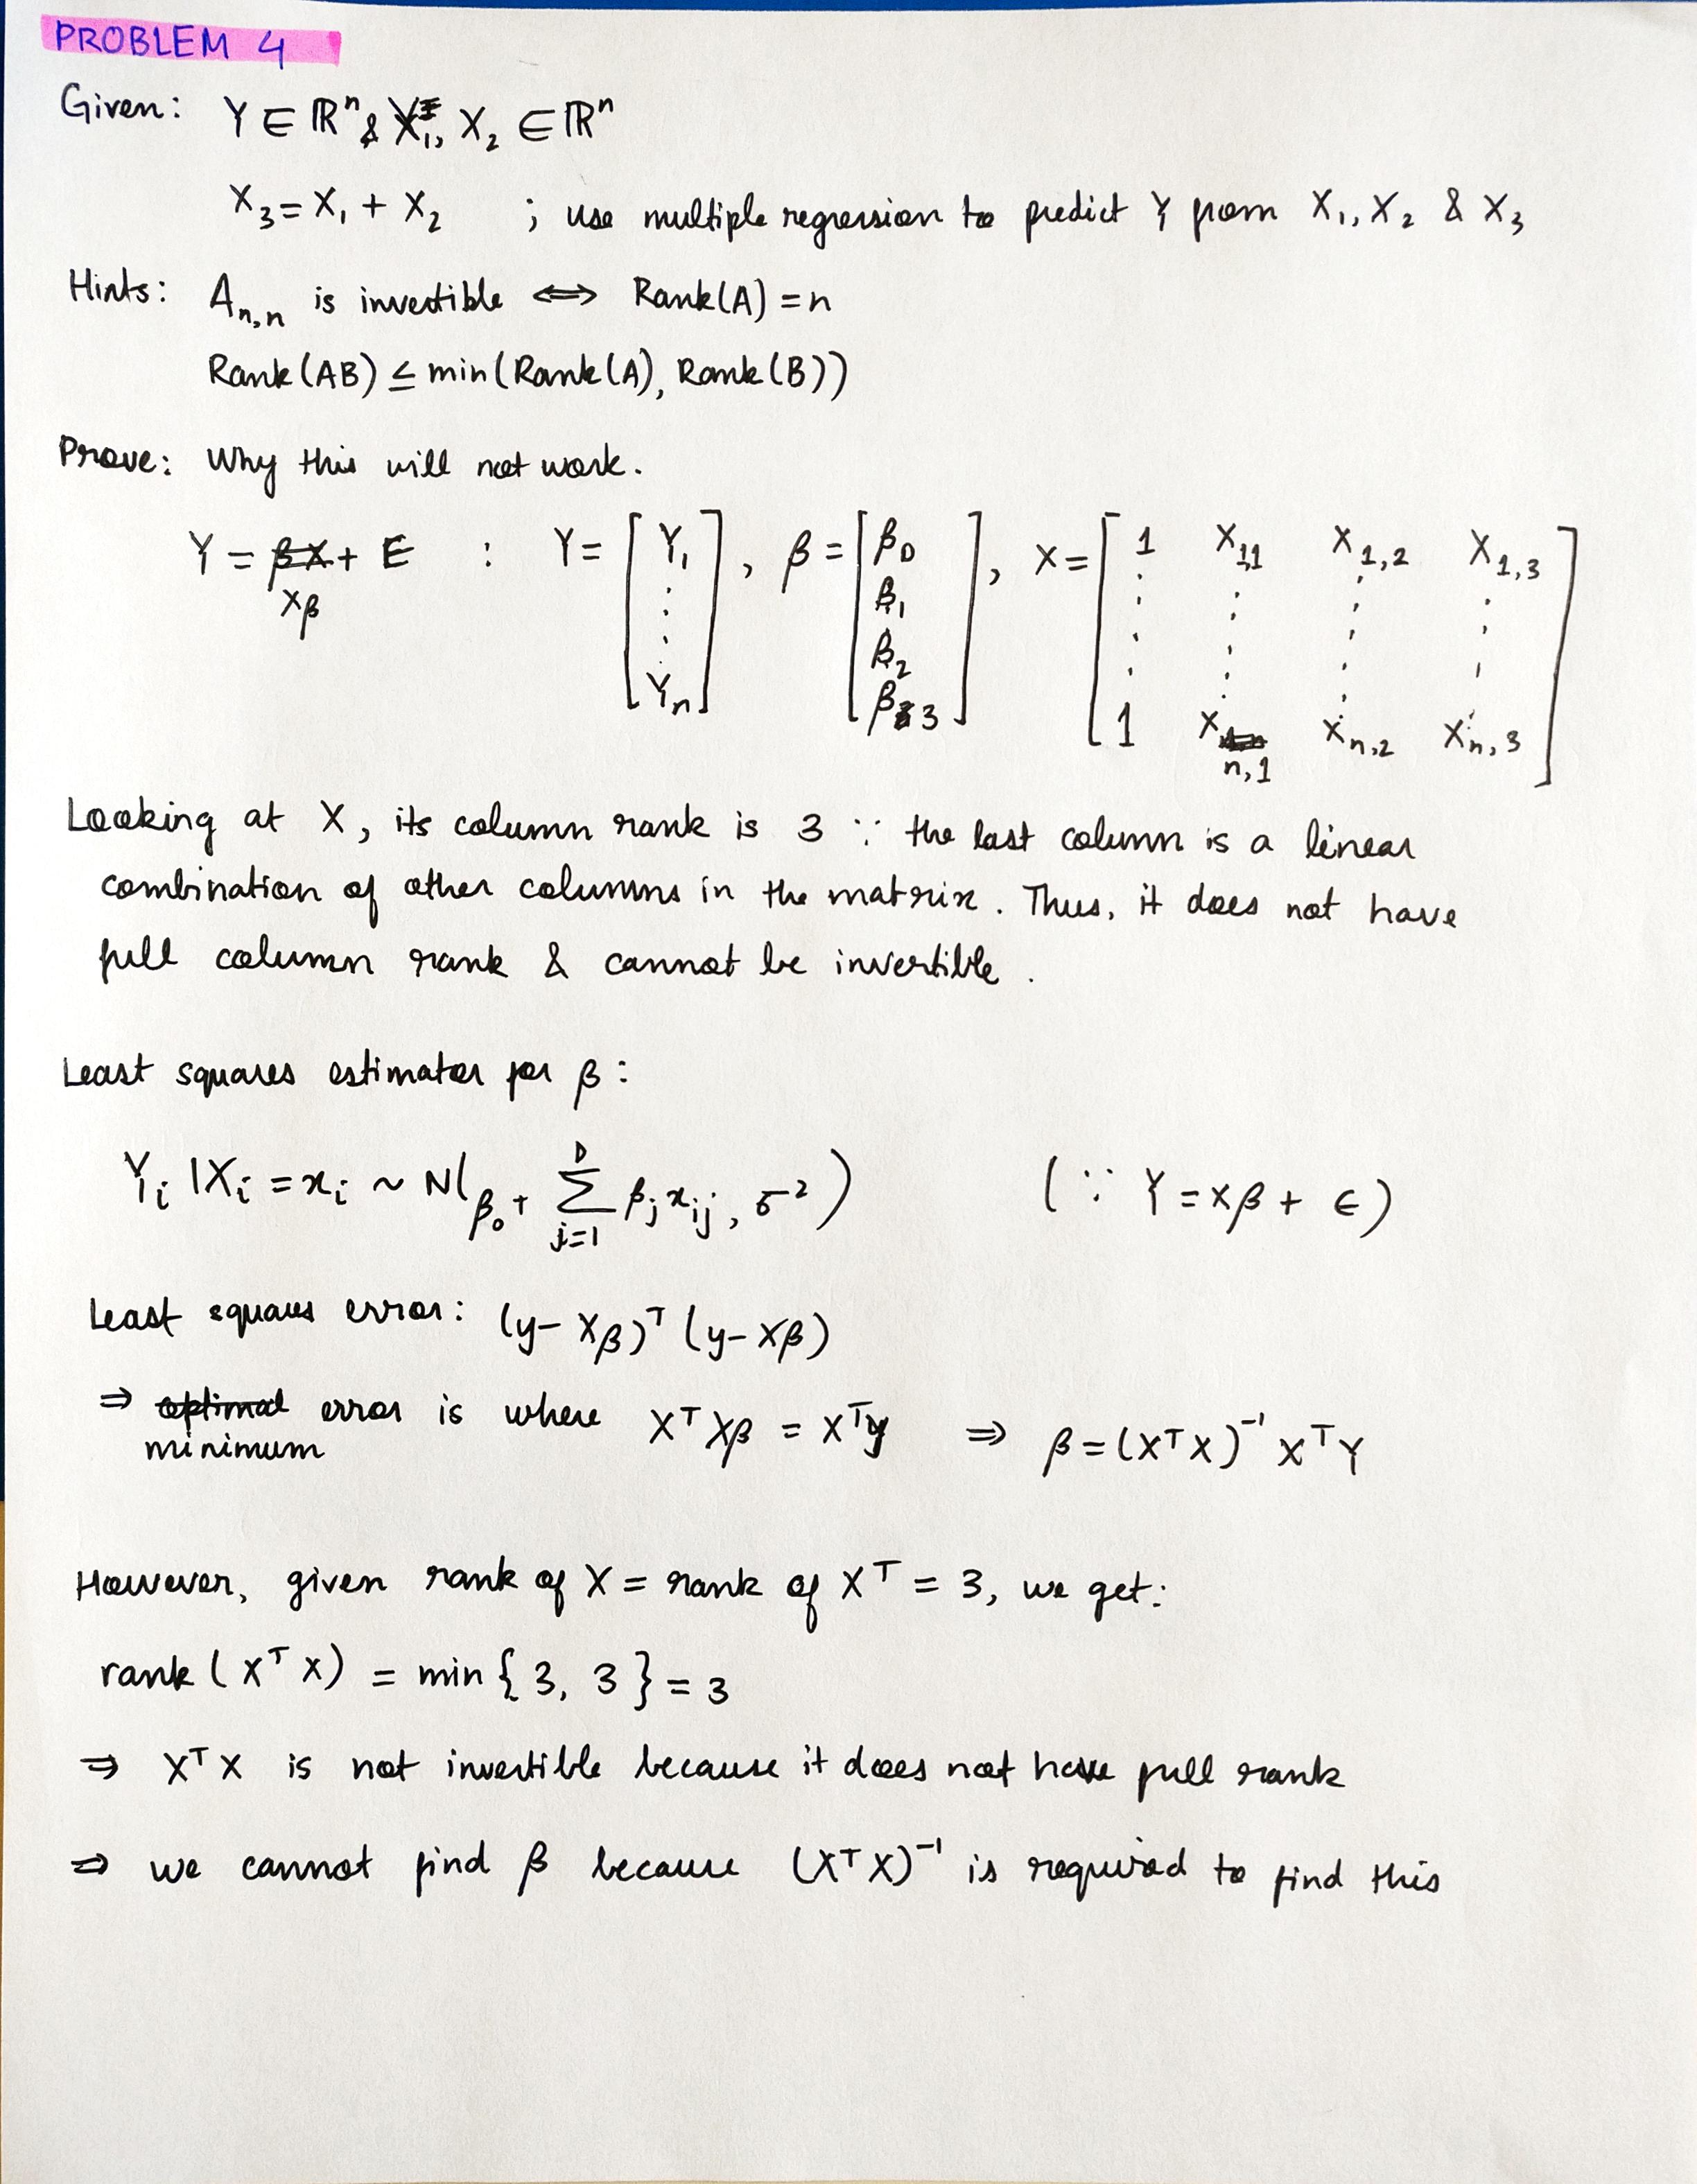 PROBLEM 4
Given: Y ∈ ℝⁿ & X₁, X₂ ∈ ℝⁿ
X₃ = X₁ + X₂ ; use multiple regression to predict Y from X₁, X₂ & X₃
Hints: Aₙ,ₙ is invertible ⟺ Rank(A) = n
Rank(AB) ≤ min(Rank(A), Rank(B))
Prove: Why this will not work.
Y = Xβ + E : Y = [Y₁ ⋮ Yₙ], β = [β₀ β₁ β₂ β₃], X = [1 X₁₁ X₁,₂ X₁,₃ ⋮ ⋮ ⋮ ⋮ 1 Xₙ,₁ Xₙ,₂ Xₙ,₃]
Looking at X, its column rank is 3 ∵ the last column is a linear
combination of other columns in the matrix. Thus, it does not have
full column rank & cannot be invertible.
Least squares estimator for β:
Yᵢ | Xᵢ = xᵢ ~ N(β₀ + Σ_{j=1}^{D} βⱼxᵢⱼ, σ²) (∵ Y = Xβ + ϵ)
Least squares error: (y - Xβ)ᵀ (y - Xβ)
⇒ minimum error is where XᵀXβ = Xᵀy ⇒ β = (XᵀX)⁻¹ XᵀY
However, given rank of X = rank of Xᵀ = 3, we get:
rank (XᵀX) = min {3, 3} = 3
⇒ XᵀX is not invertible because it does not have full rank
⇒ we cannot find β because (XᵀX)⁻¹ is required to find this